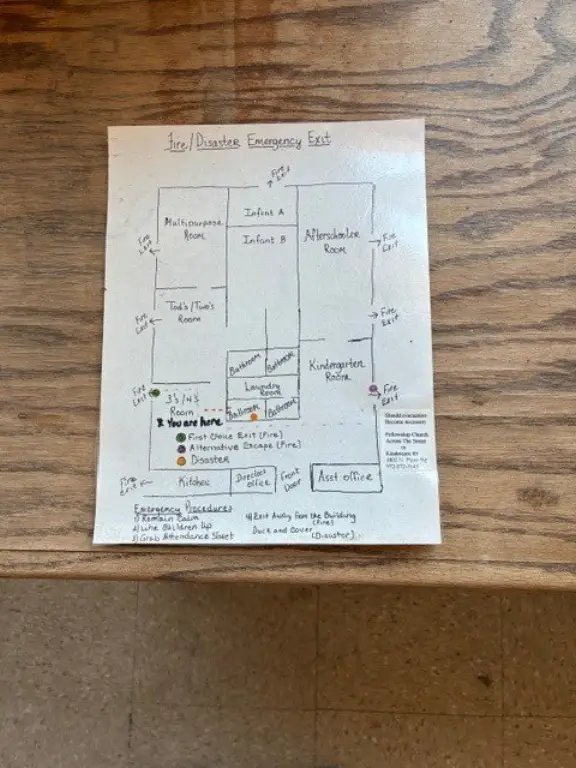 Fire/Disaster Emergency Exit
Fire
Exit
Multipurpose
Room
Infant A
Infant B
Afterschooler
Room
Fire
Exit
Fire
Exit
Tod's/Two's
Room
Fire
Exit
Fire
Exit
Bathroom
Bathroom
Kindergarten
Room
Laundry
Room
Fire
Exit
3's/4's
Room
Fire
Exit
Bathroom
Bathroom
X You are here
First Choice Exit (Fire)
Alternative Escape (Fire)
Disaster
Should evacuation
Become necessary
Fellowship Church
Across The Street
Fire
Exit
Kitchen
Director's
Office
Front
Door
Asst office
Emergency Procedures
1) Remain Calm
2) Line Children Up
3) Grab Attendance Sheet
4) Exit Away From the Building
(Fire)
Duck and Cover
(Disaster)